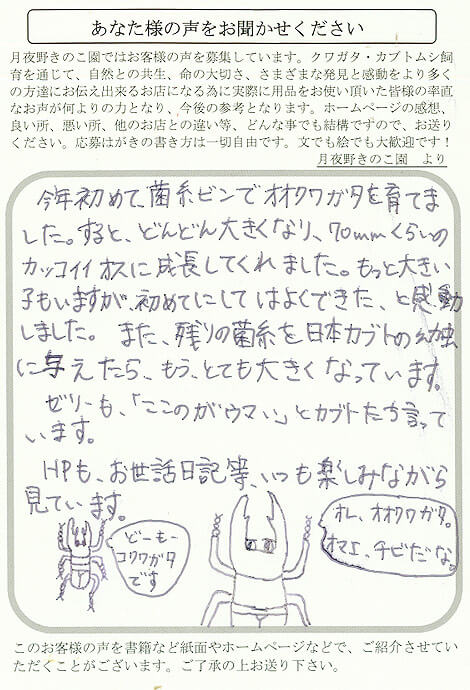 あなた様の声をお聞かせください
月夜野きのこ園ではお客様の声を募集しています。クワガタ・カブトムシ飼
育を通じて、自然との共生、命の大切さ、さまざまな発見と感動をより多く
の方達にお伝え出来るお店になる為に実際に用品をお使い頂いた皆様の率直
なお声が何よりの力となり、今後の参考となります。ホームページの感想、
良い所、悪い所、他のお店との違い等、どんな事でも結構ですので、お送り
ください。応募はがきの書き方は一切自由です。文でも絵でも大歓迎です！
月夜野きのこ園　より
今年初めて、菌糸ビンでオオクワガタを育てま
した。すると、どんどん大きくなり、70mmくらいの
カッコイイオスに成長してくれました。もっと大きい
子もいますが、初めてにしてはよくできた、と感動
しました。また、残りの菌糸を日本カブトの幼虫
に与えたら、もう、とても大きくなっています。
ゼリーも、「ここのがウマい」とカブトたち言って
います。
HPも、お世話日記等、いつも楽しみながら
見ています。
どーもー
コクワガタ
です
オレ、オオクワガタ。
オマエ、チビだな。
このお客様の声を書籍など紙面やホームページなどで、ご紹介させてい
ただくことがございます。ご了承の上お送り下さい。